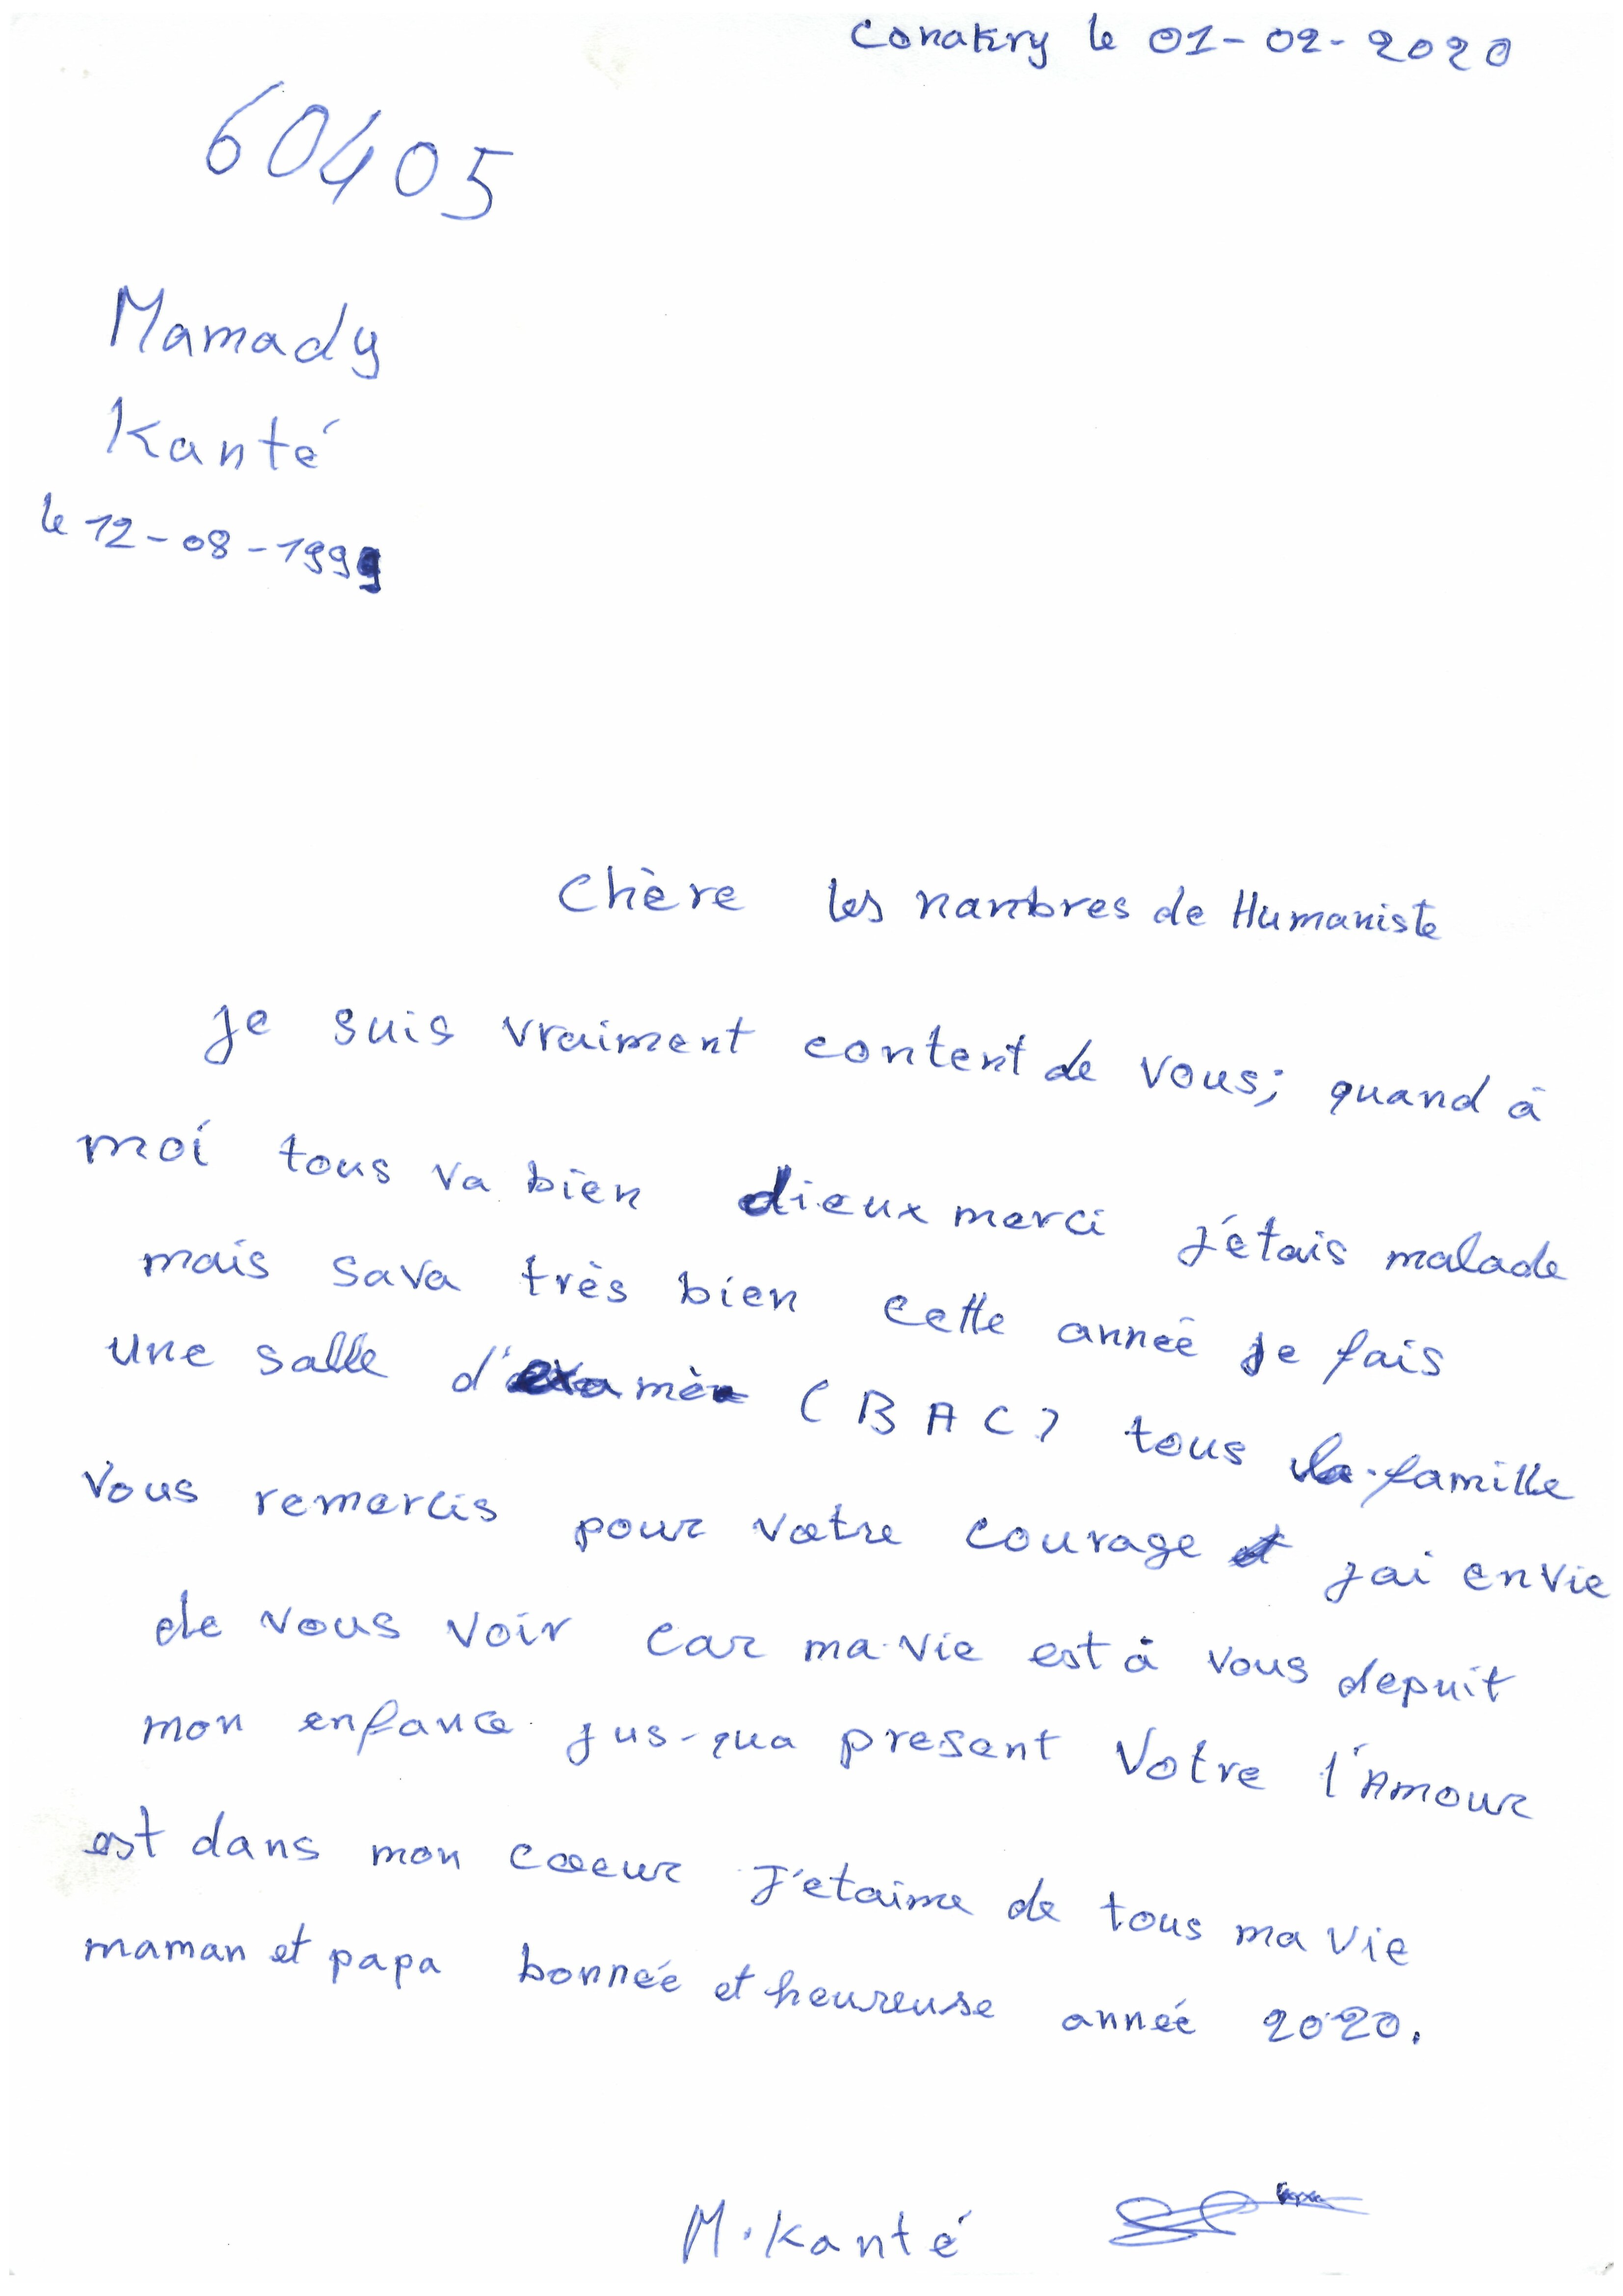 Conakry le 01-02-2020
60405
Mamady
Kanté
le 12-08-1999
Chère les nambres de Humaniste
je suis vraiment content de vous; quand à
moi tous va bien dieux merci j'étais malade
mais sava très bien cette année je fais
une salle d'examèn (BAC) tous la famille
Vous remercis pour vœtre courage et jai envie
de vous voir car ma vie est à vous depuit
mon enfance jus-qua present Votre l'Amour
est dans mon cœeur J'etaime de tous ma vie
maman et papa bonnée et heureuse année 2020.
M. Kanté